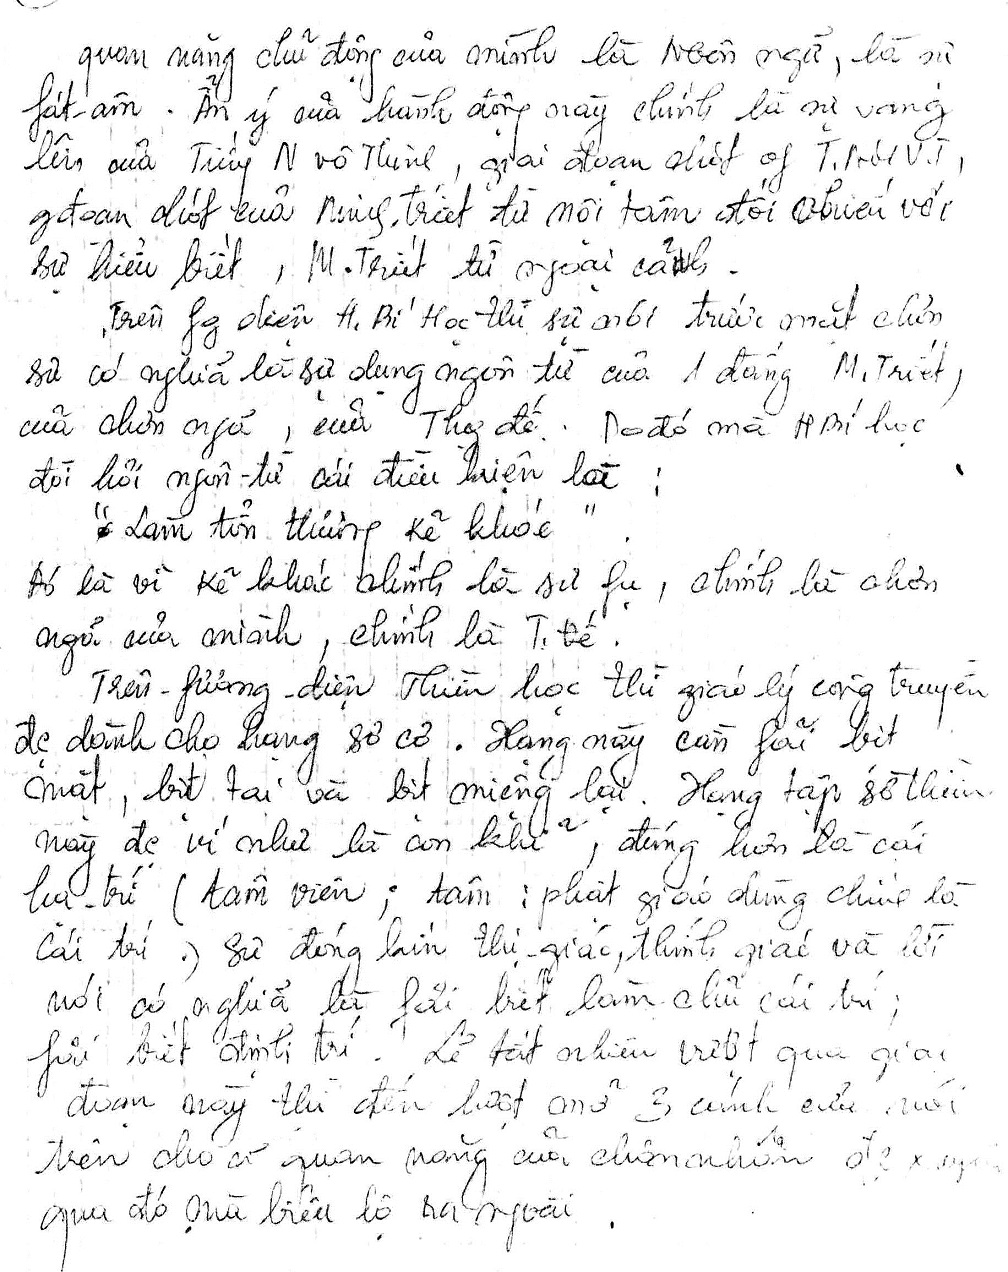 quan năng chủ động của mình là Ngôn ngữ, là sự
fát-âm. Ẩn ý của hành động này chính là sự vang
lên của Tiếng N vô Thinh, giai đoạn chót of T. Nói V.T,
gđoạn chót của Minh triết từ nội tâm đối chiếu với
sự hiểu biết, M.Triết từ ngoại cảnh.
Trên fg diện H. Bí Học thì sự nói trước mặt chơn
sư có nghĩa là sự dụng ngôn từ của 1 đấng M.Triết,
của chơn ngã, của Thg đế. Do đó mà H Bí học
đòi hỏi ngôn-từ cái điều kiện là:
"Làm tổn thương kẻ khác".
Đó là vì kẻ khác chính là sư fụ, chính là chơn
ngã của mình, chính là T. Đế.
Trên-fương-diện Thiền học thì giáo lý công truyền
đc dành cho hạng sơ cơ. Hạng này cần fải bịt
mắt, bịt tai và bịt miệng lại. Hạng tập sơ thiền
này đc ví như là con khỉ, đúng hơn là cái
hạ-trí (tâm viên; tâm: phật giáo dùng chính là
cái trí.) sự đóng kín thị-giác, thính giác và lời
nói có nghĩa là fải biết làm chủ cái trí;
fải biết định trí. Lẽ tất nhiên vượt qua giai
đoạn này thì đến lượt mở 3 cánh cửa nói
trên cho cơ quan năng của chân nhơn đc
qua đó mà biểu lộ ra ngoài.